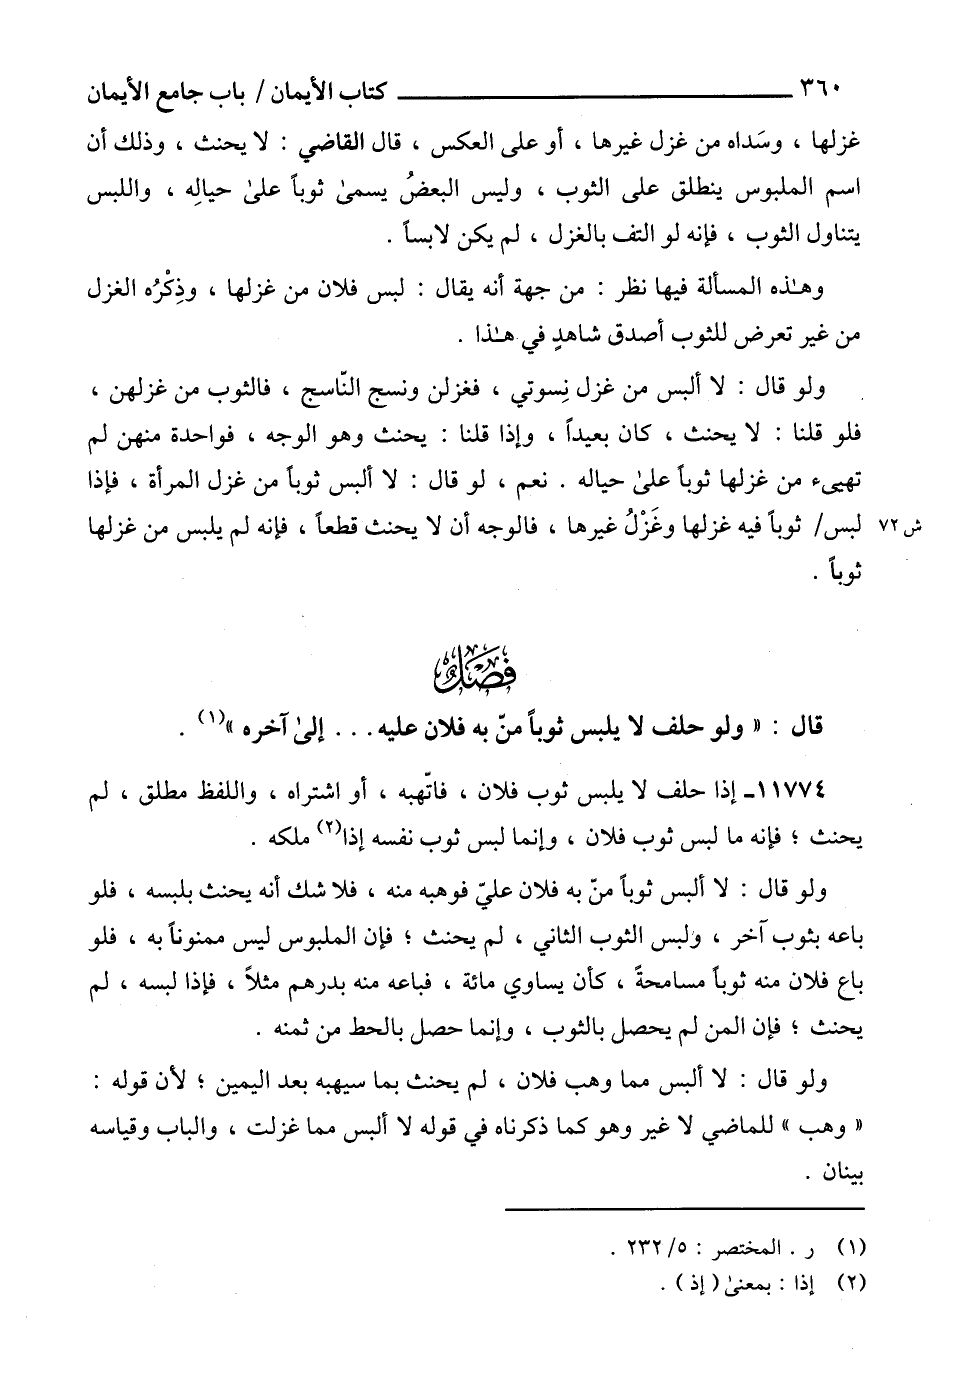 ٣٦٠ ــــــــــــــــــــ كتاب الأيمان / باب جامع الأيمان
غزلها ، وسَداه من غزل غيرها ، أو على العكس ، قال القاضي : لا يحنث ، وذلك أن
اسم الملبوس ينطلق على الثوب ، وليس البعضُ يسمىٰ ثوباً علىٰ حيالِه ، واللبس
يتناول الثوب ، فإنه لو التف بالغزل ، لم يكن لابساً .
وهـٰذه المسألة فيها نظر : من جهة أنه يقال : لبس فلان من غزلها ، وذِكْرُه الغزل
من غير تعرض للثوب أصدق شاهدٍ في هـٰذا .
ولو قال : لا ألبس من غزل نِسوتي ، فغزلن ونسج النّاسج ، فالثوب من غزلهن ،
فلو قلنا : لا يحنث ، كان بعيداً ، وإذا قلنا : يحنث وهو الوجه ، فواحدة منهن لم
تهيىء من غزلها ثوباً علىٰ حياله . نعم ، لو قال : لا ألبس ثوباً من غزل المرأة ، فإذا
ش ٧٢ لبس/ ثوباً فيه غزلها وغَزْلُ غيرها ، فالوجه أن لا يحنث قطعاً ، فإنه لم يلبس من غزلها
ثوباً .
فصل
قال : « ولو حلف لا يلبس ثوباً منّ به فلان عليه . . . إلىٰ آخره »(١) .
١١٧٧٤ـ إذا حلف لا يلبس ثوب فلان ، فاتّهبه ، أو اشتراه ، واللفظ مطلق ، لم
يحنث ؛ فإنه ما لبس ثوب فلان ، وإنما لبس ثوب نفسه إذا(٢) ملكه .
ولو قال : لا ألبس ثوباً منّ به فلان عليّ فوهبه منه ، فلا شك أنه يحنث بلبسه ، فلو
باعه بثوب آخر ، ولبس الثوب الثاني ، لم يحنث ؛ فإن الملبوس ليس ممنوناً به ، فلو
باع فلان منه ثوباً مسامحةً ، كأن يساوي مائة ، فباعه منه بدرهم مثلاً ، فإذا لبسه ، لم
يحنث ؛ فإن المن لم يحصل بالثوب ، وإنما حصل بالحط من ثمنه .
ولو قال : لا ألبس مما وهب فلان ، لم يحنث بما سيهبه بعد اليمين ؛ لأن قوله :
« وهب » للماضي لا غير وهو كما ذكرناه في قوله لا ألبس مما غزلت ، والباب وقياسه
بينان .
(١) ر . المختصر : ٥/ ٢٣٢ .
(٢) إذا : بمعنىٰ ( إذ ) .